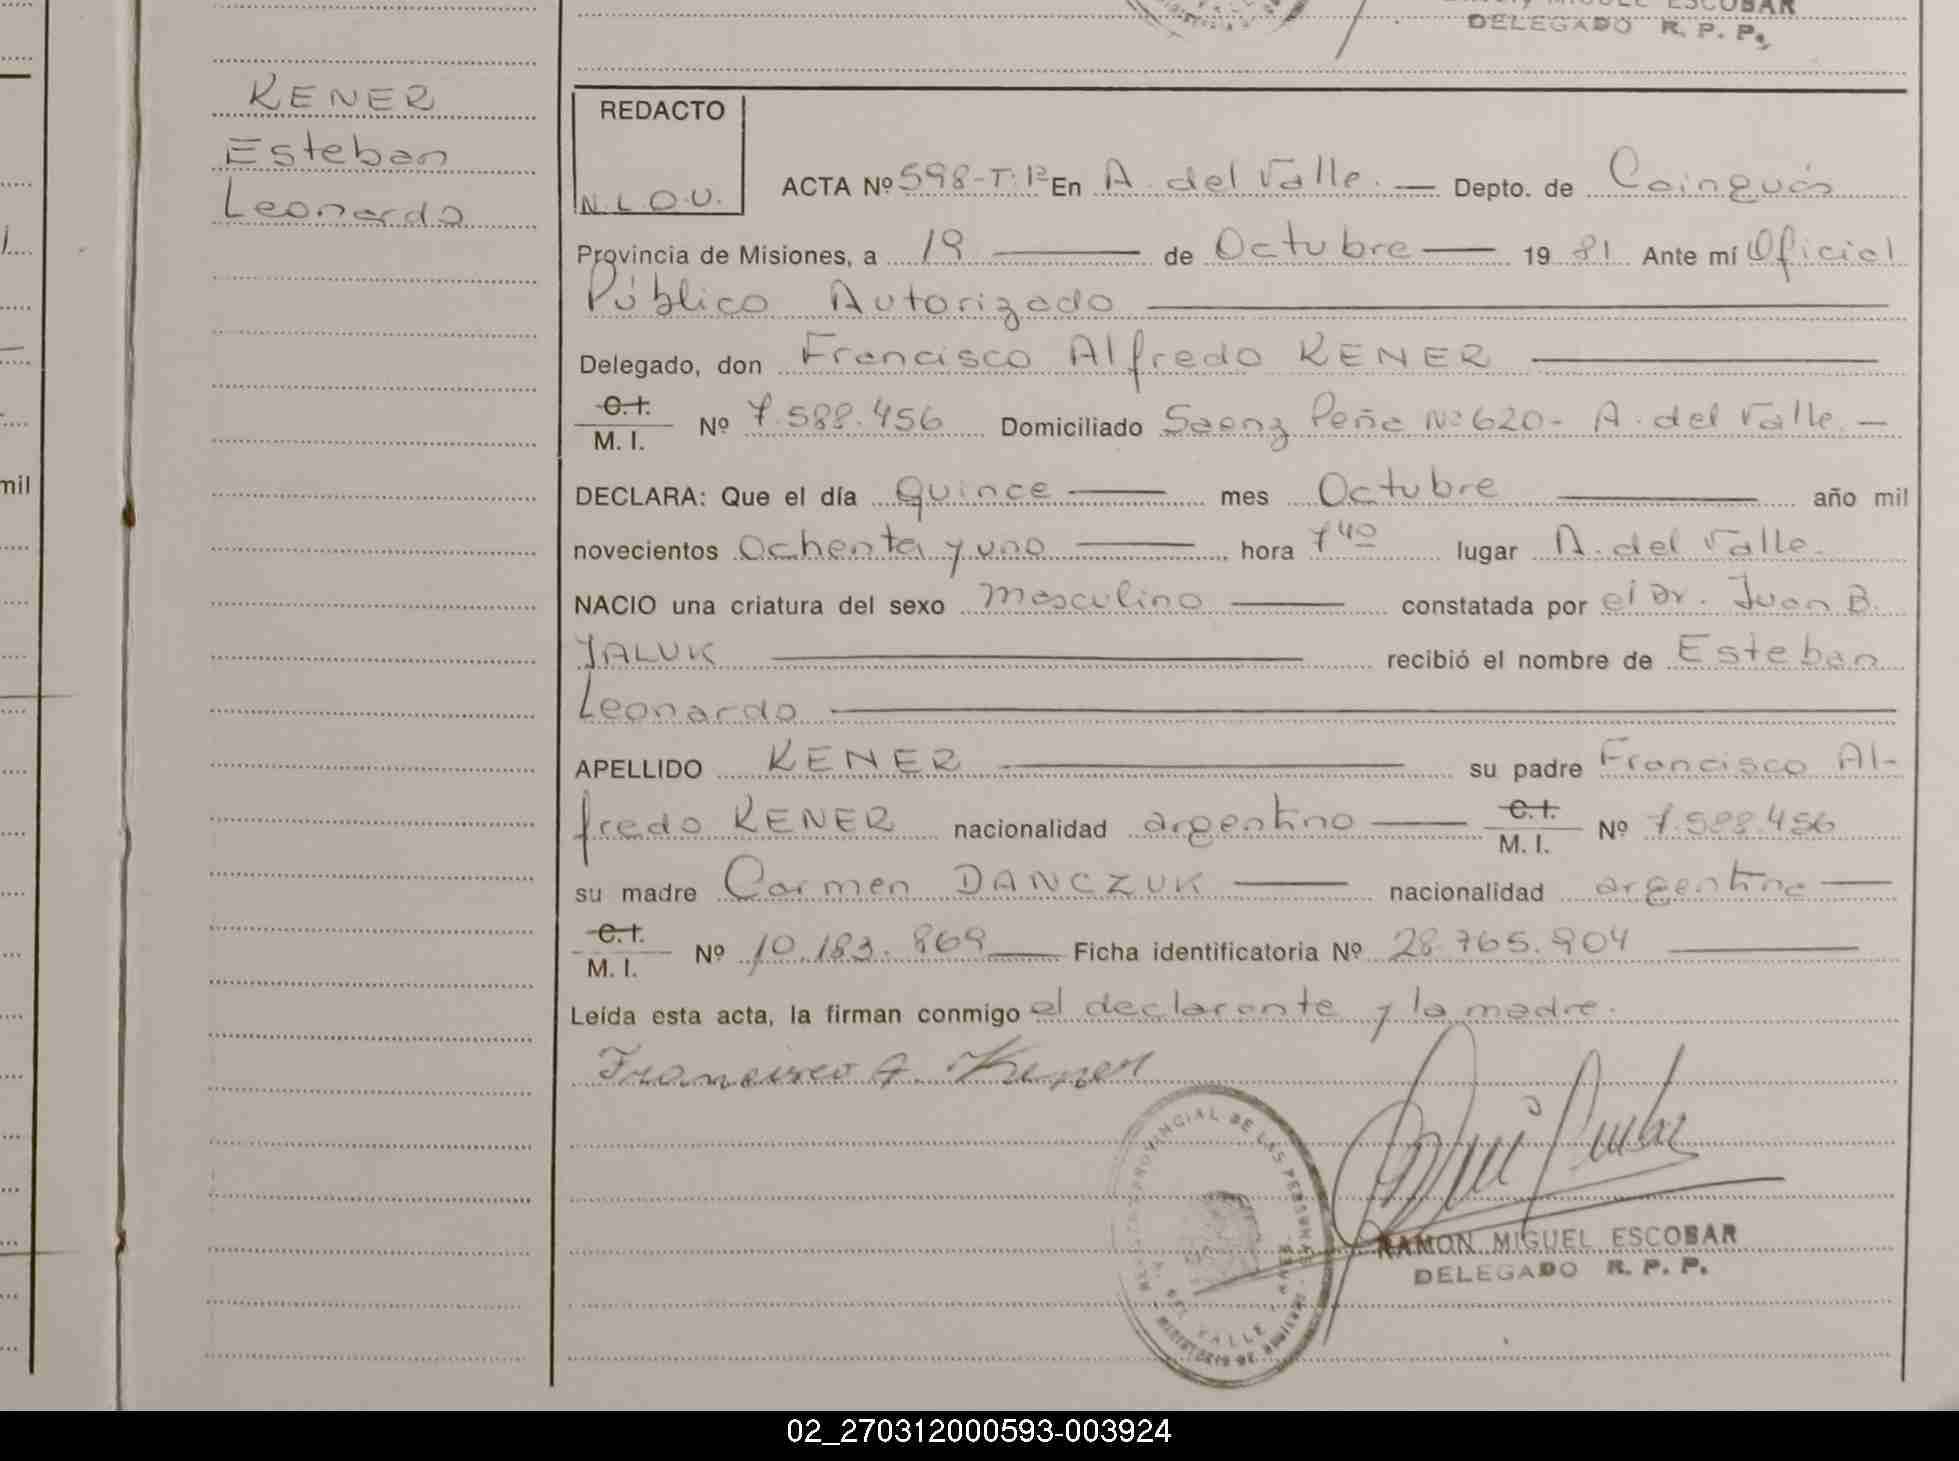 ESCOBAR
DELEGADO R. P. P.
KENER
Esteban
Leonardo
REDACTO
N.L.O.U.
ACTA Nº 598-T:12 En A. del Valle. — Depto. de Cainguás
Provincia de Misiones, a 19 — de Octubre — 19 81 Ante mí Oficial
Público Autorizado
Delegado, don Francisco Alfredo KENER
C.I.
M. I. Nº 7.588.456 Domiciliado Saenz Peña Nº 620- A. del Valle. —
mil
DECLARA: Que el día quince — mes Octubre — año mil
novecientos ochenta y uno — hora 7 40 lugar A. del Valle.
NACIO una criatura del sexo masculino — constatada por el Dr. Juan B.
YALUK — recibió el nombre de Esteban
Leonardo
APELLIDO KENER — su padre Francisco Al-
fredo KENER nacionalidad argentino — C.I. M. I. Nº 7.588.456
su madre Carmen DANCZUK — nacionalidad argentina —
C.I.
M. I. Nº 10.183.869 — Ficha identificatoria Nº 28.765.904 —
Leída esta acta, la firman conmigo el declarante y la madre.
Francisco A. Kener
PROVINCIAL DE LAS PERSONAS
DEL VALLE
RAMON MIGUEL ESCOBAR
DELEGADO R. P. P.
02_270312000593-003924